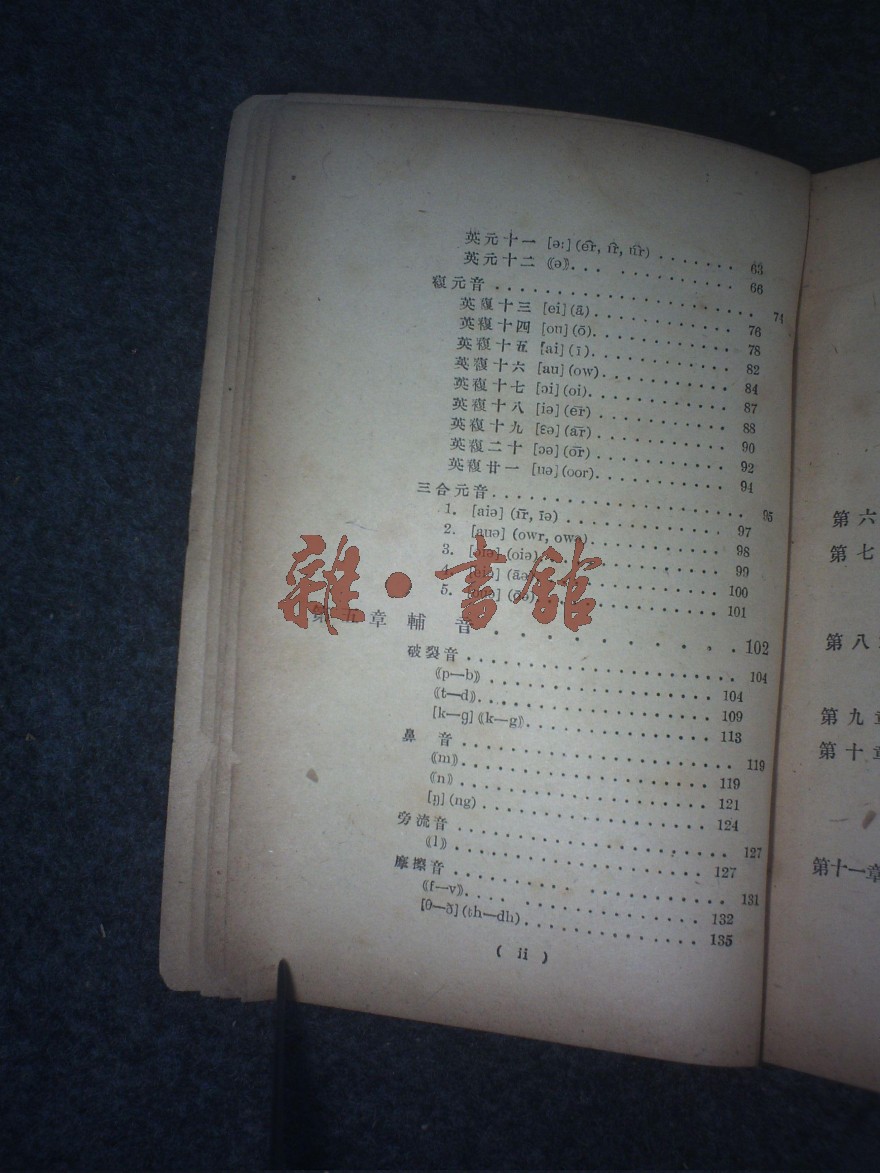 英元十一 [ə:] (êr, îr, ûr) . . . . . . . 63
英元十二 ⟪ə⟫. . . . . . . . . . . 66
複元音 . . . . . . . . . . . . . . . 74
英複十三 [ei] (ā) . . . . . . . . . . . 76
英複十四 [ou] (ō). . . . . . . . . . . 78
英複十五 [ai] (ī). . . . . . . . . . . 82
英複十六 [au] (ow). . . . . . . . . . . 84
英複十七 [ɔi] (oi). . . . . . . . . . . 87
英複十八 [iə] (ēr) . . . . . . . . . . . 88
英複十九 [ɛə] (ār) . . . . . . . . . . . 90
英複二十 [ɔə] (ōr). . . . . . . . . . . 92
英複廿一 [uə] (oor). . . . . . . . . . . 94
三合元音. . . . . . . . . . . . . . . 95
1. [aiə] (īr, īə) . . . . . . . . . . . 97
2. [auə] (owr, owə) . . . . . . . . . . . 98
3. (oiə). . . . . . . . . . . 99
4. . . . . . . . . . . 100
5. . . . . . . . . . . 101
第五章 輔音 . . . . . . . . . . 102
破裂音 . . . . . . . . . . . . . . . 104
⟪p—b⟫ . . . . . . . . . . . 104
⟪t—d⟫. . . . . . . . . . . 109
[k—g] ⟪k—g⟫. . . . . . . . . . . 113
鼻 音 . . . . . . . . . . . . . . . 119
⟪m⟫. . . . . . . . . . . 119
⟪n⟫ . . . . . . . . . . . 121
[ŋ] (ng) . . . . . . . . . . . 124
旁流音 . . . . . . . . . . . . . . . 127
⟪l⟫ . . . . . . . . . . . 127
摩擦音 . . . . . . . . . . . . . . . 131
⟪f—v⟫. . . . . . . . . . . 132
[θ—ð] (th—dh) . . . . . . . . . . . 135
( ii )
雜·書館
第六
第七
第八章
第九章
第十章
第十一章